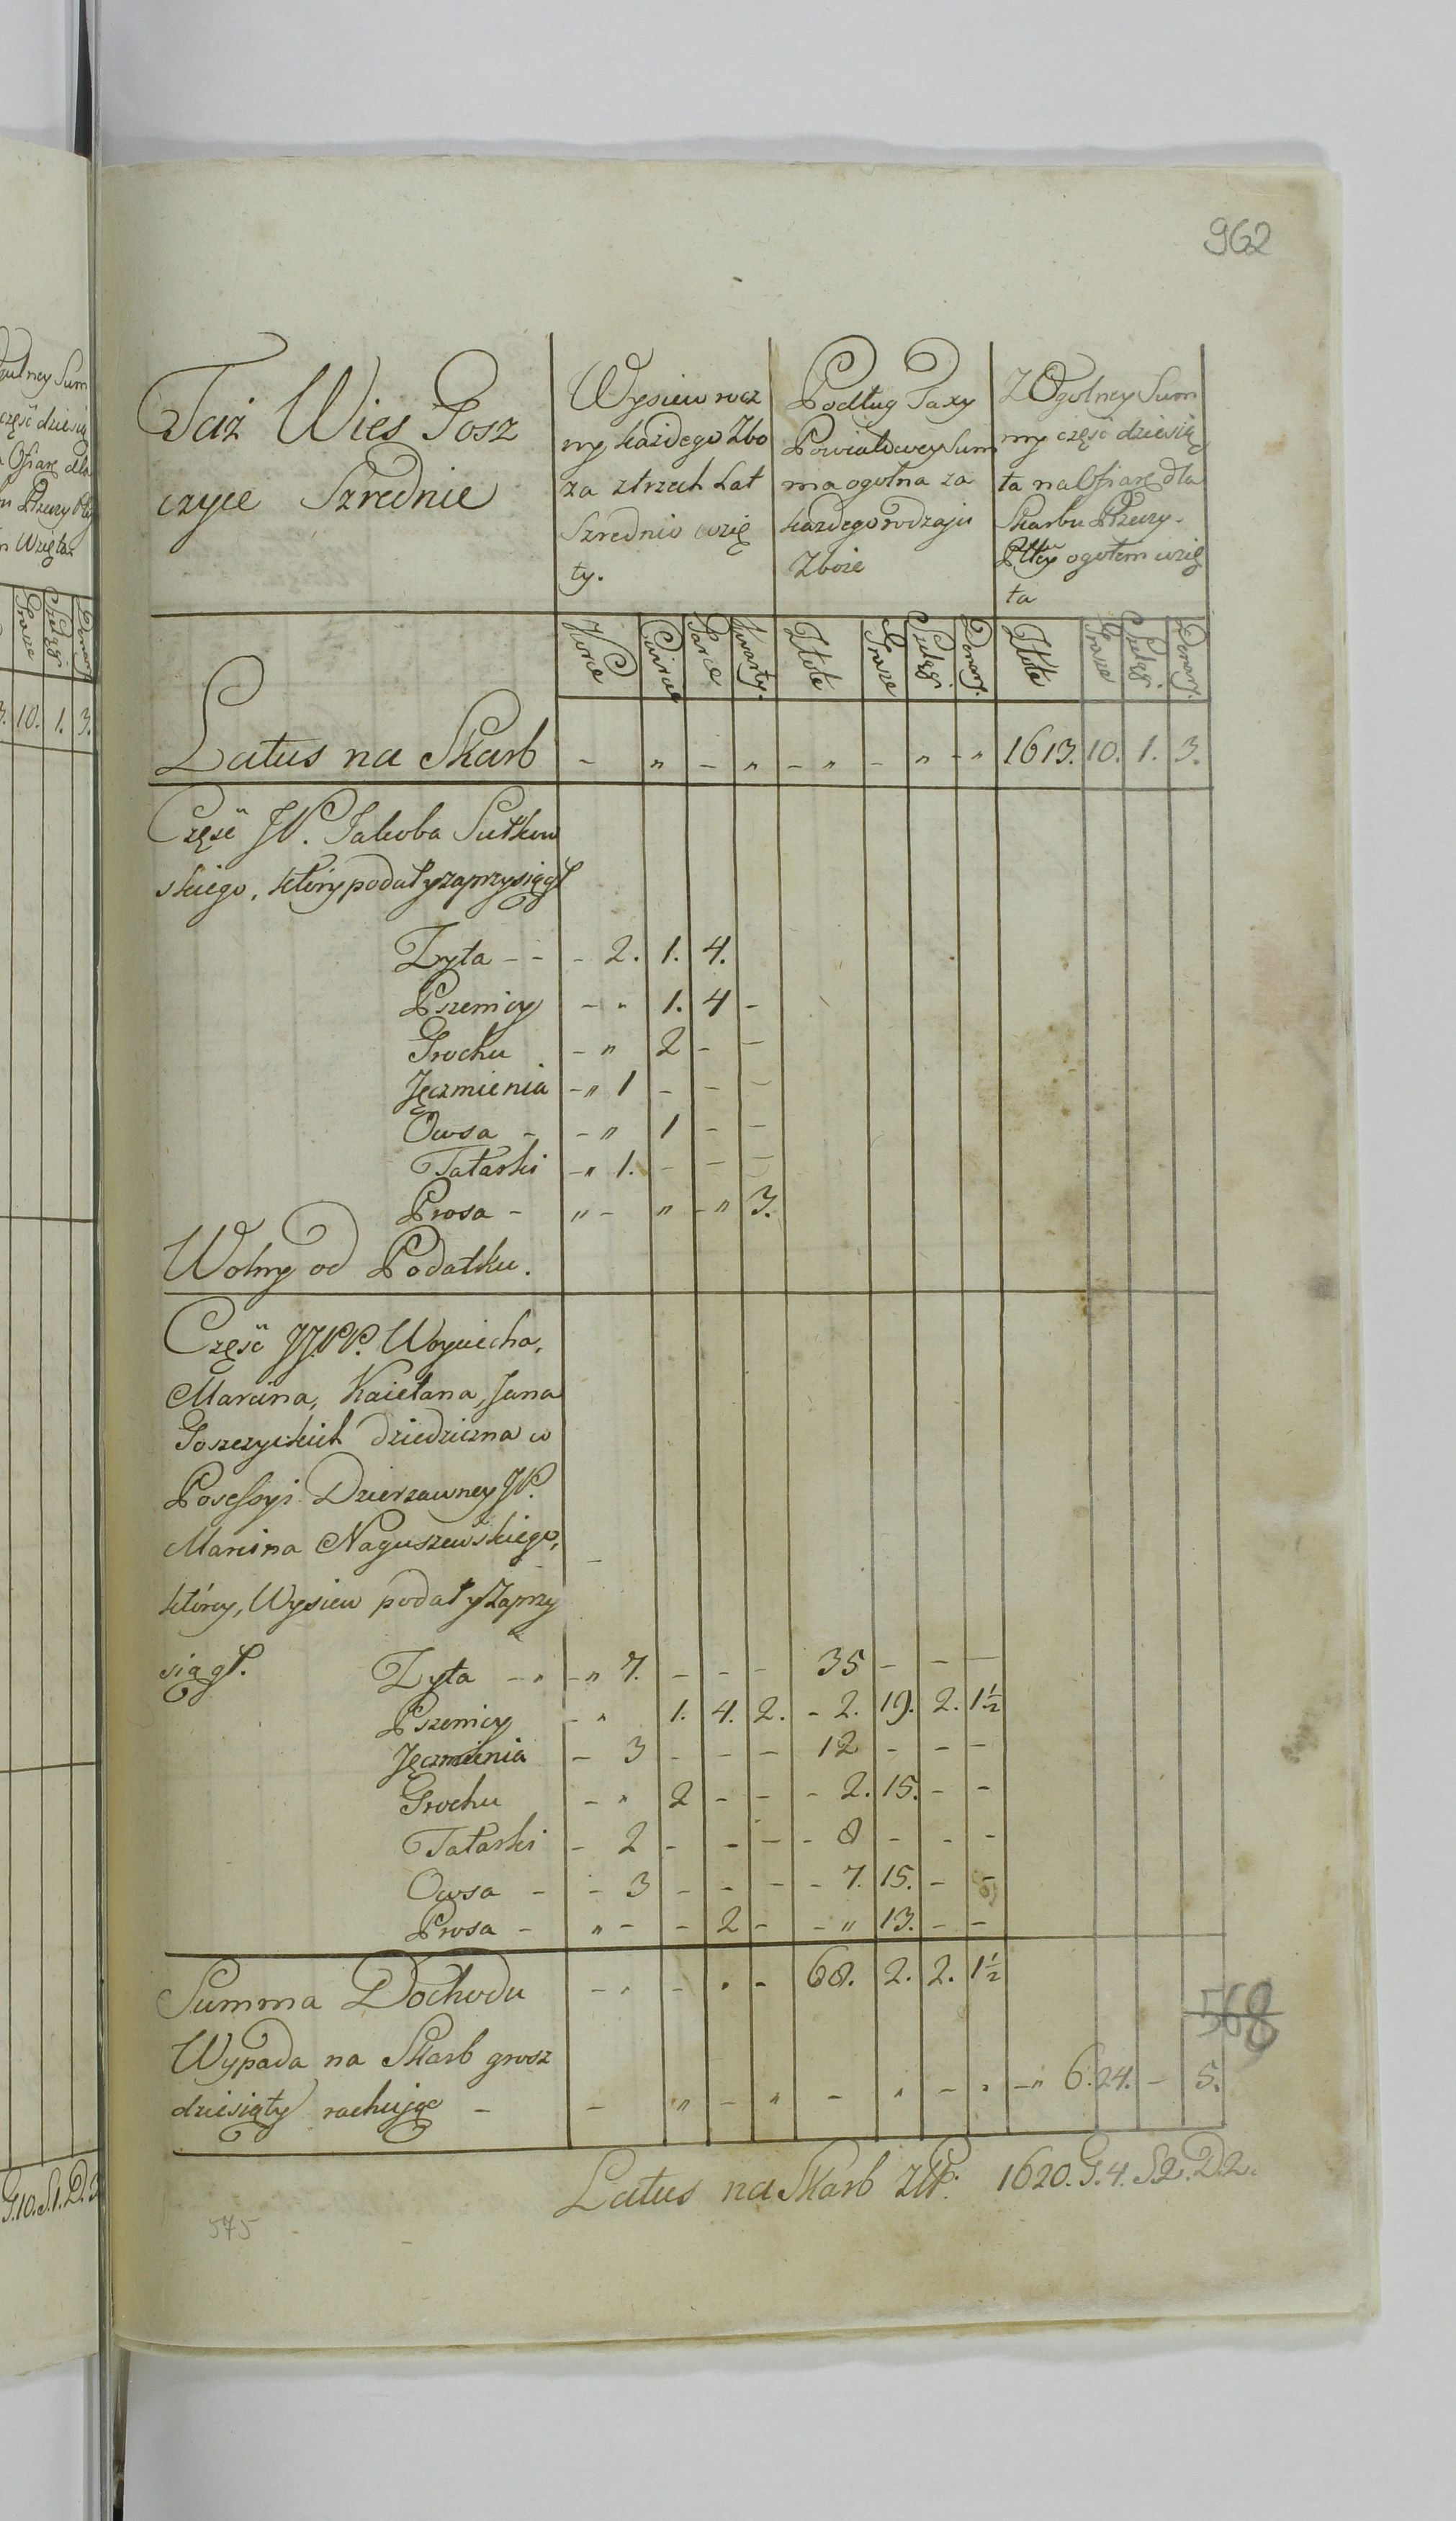 962
Taż Wies Gosz
czyce Szrednie
Wysiew rocz
ny każdego Zbo
za ztrzech Lat
Szrednio wzię
ty.
Podług Taxy
Powiatowey Sum
ma ogolna za
każdego rodzaju
Zboże
Z Ogolney Sum
my część dziesią
ta na Ofiarę dla
Skarbu Rzeczy-
Pltey ogołem wzię
ta
Korce Cwierce Garce Kwarty. Złote Grosze Szelągi Denary. Złote Grosze Szelągi Denary.
Latus na Skarb - " - " - " - " - " 1613. 10. 1. 3.
Część JP. Jakoba Sutkow
skiego, który podał y zaprzysiągł
Zyta - - - 2. 1. 4.
Pszenicy - " 1. 4 -
Grochu - " 2 - -
Jęczmienia - " 1 - - -
Owsa - - " 1 - -
Tatarki - " 1. - - -
Prosa - " - " - " 3.
Wolny od Podatku.
Część JJPP. Woyciecha,
Marcina, Kaietana, Jana
Goszczyckich dziedziczna w
Possessyi Dzierzawney JP.
Marcina Naguszewskiego,
który, Wysiew podał y Zaprzy
siągł. Zyta - " - " 7. - - - 35 - - -
Pszenicy - " 1. 4. 2. - 2. 19. 2. 1½
Jęczmienia - 3 - - - 12 - - -
Grochu - " 2 - - - 2. 15. - -
Tatarki - 2 - - - - 8 - - -
Owsa - - 3 - - - - 7. 15. - -
Prosa - " - - 2 - - " 13. - -
Summa Dochodu - " - " - 68. 2. 2. 1½
568
Wypada na Skarb grosz
dziesiąty rachując - - " - " - " - " - " 6. 24. - 5.
Latus na Skarb ZłP. 1620. G. 4. S. 2. D. 2.
575